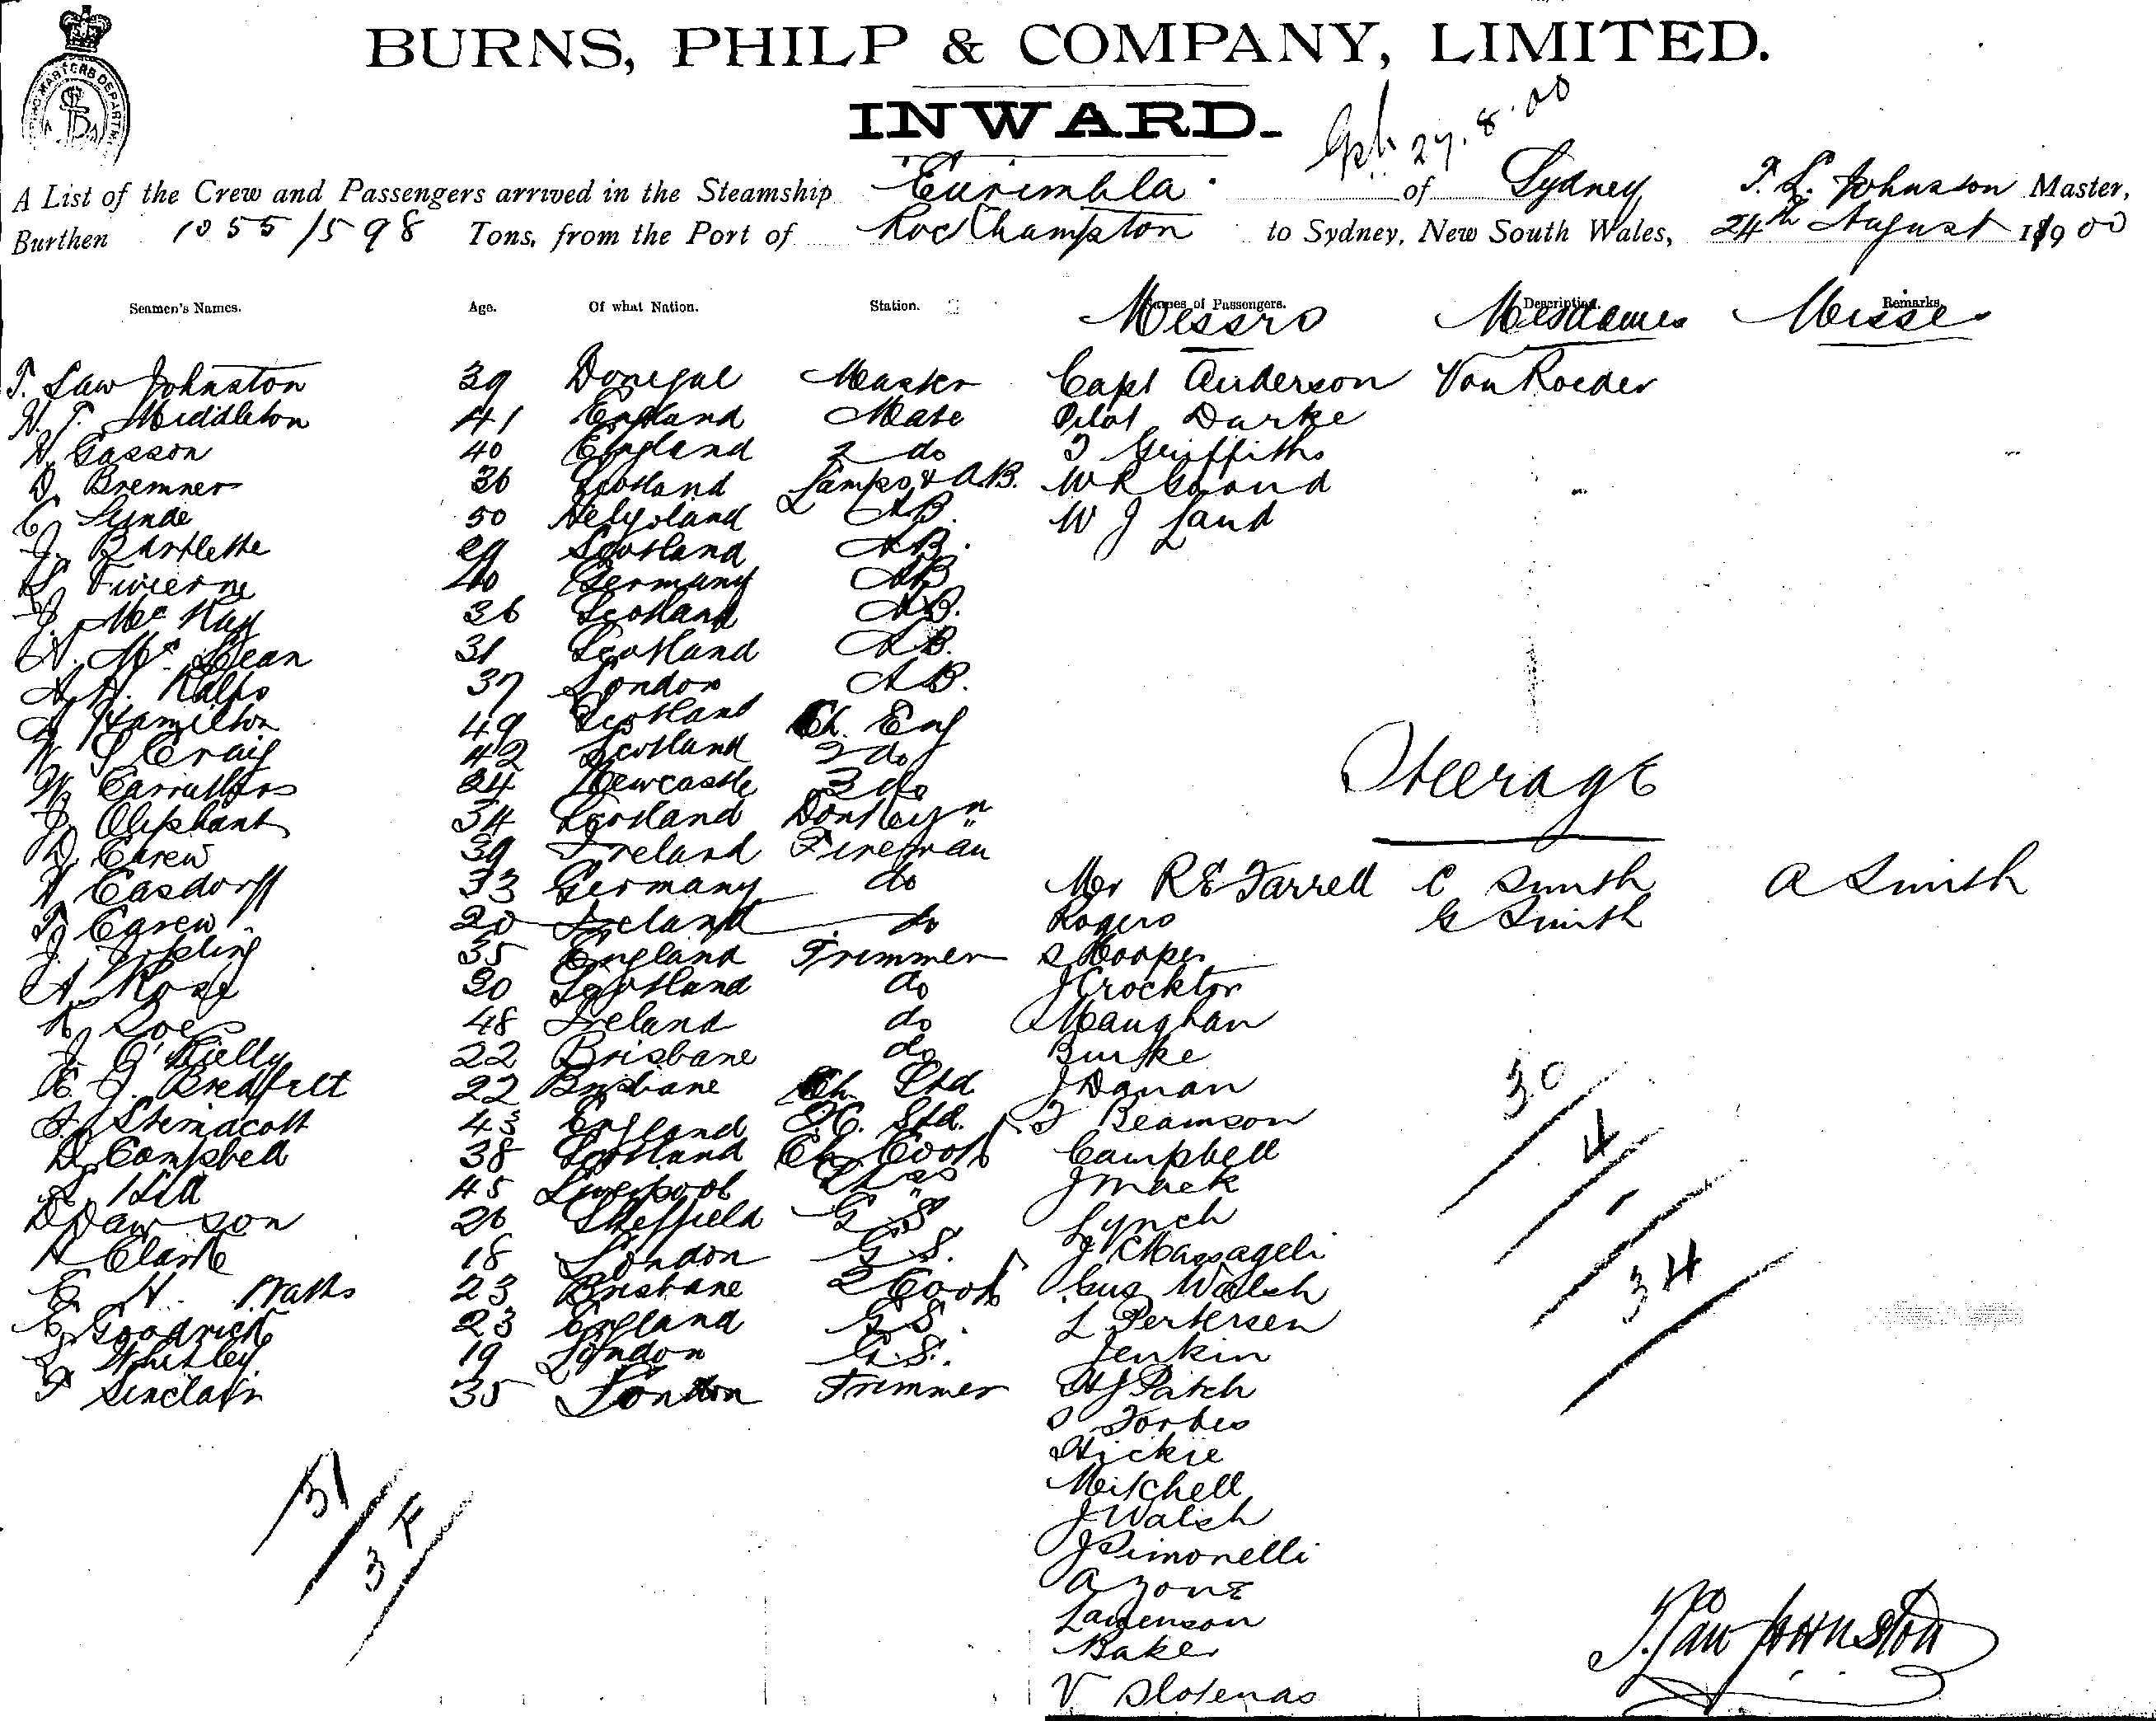 BURNS, PHILP & COMPANY, LIMITED.
INWARD.
27.8.00
A List of the Crew and Passengers arrived in the Steamship Eurimbla of Sydney T. L. Johnston Master,
Burthen 1055/598 Tons, from the Port of Rockhampton to Sydney, New South Wales, 24th August 1900
Seamen's Names. Age. Of what Nation. Station. Names of Passengers. Description. Remarks.
Messrs Mesdames Misses
T. Law Johnston 39 Donegal Master Capt Anderson Van Roeder
H. T. Middleton 41 England Mate Pilot Darke
H. Gasson 40 England 2 do T Griffiths
D. Bremner 36 Scotland Lamps & A.B. W R
C. Lunde 50 Helgoland A.B. W J Land
J. Bartlette 29 Scotland A.B.
L. 40 Germany AB
J. McKay 36 Scotland A.B.
A. McLean 31 Scotland A.B.
A. H. Ralfs 37 London A.B.
A Hamilton 49 Scotland Ch. Eng
W S Craig 42 Scotland 2 do
W. Carruthers 24 Newcastle 3 do
Steerage
J. Oliphant 34 Scotland Donkeyn
D. Carew 39 Ireland Fireman
A. Easdorff 33 Germany do Mr R E Farrell C Smith A Smith
T. Carew 20 Ireland do Rogers G Smith
J. Jopling 35 England Trimmer S Hooper
A. Rose 20 Scotland do J Crockton
K. Roe 48 Ireland do Maughan
J. O'Rielly 22 Brisbane do Burke
E. J. Bredfelt 22 Brisbane Ch. Std J Danan
J. Stemacott 43 England F.C. Std. T Beamson
D. Campbell 38 Scotland Ch Cook Campbell
L. Hill 45 Liverpool J Mack
D Dawson 26 Sheffield G S Lynch
H Clark 18 London G. S. J Massageli
E. H. Watts 23 Brisbane 2 Cook Gus Walsh
C. Goodrick 23 England G S. L Pertersen
S. Whitley 19 London G. S. Jenkin
F Sinclair 35 London Trimmer H J Patch
S Forbes
Hickie
Mitchell
J Walsh
J Simonelli
A Zone
Lawenson
Baker
V Slotenas
30
4
34
31
34
T. Law Johnston